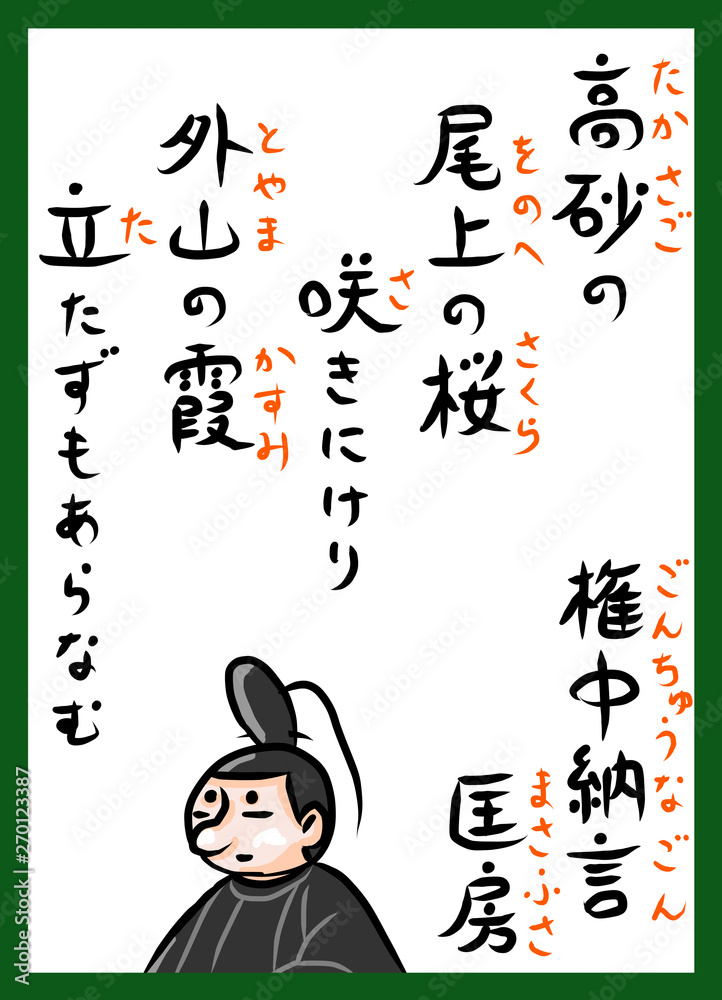 高砂の
たかさご
尾上の桜
をのへ さくら
咲きにけり
さ
外山の霞
とやま かすみ
立たずもあらなむ
た
権中納言
ごんちゅうなごん
匡房
まさふさ
Adobe Stock | #270123387